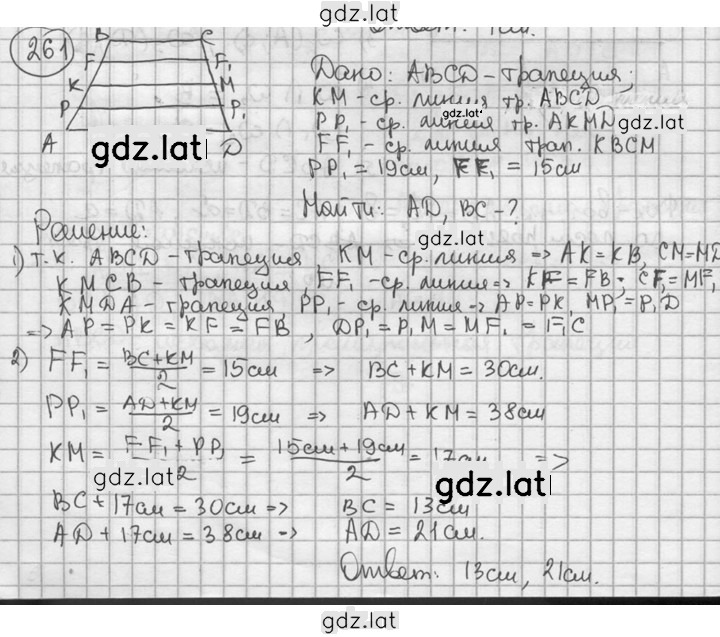 gdz.lat
261
B C
F F₁
K M
P P₁
A D
gdz.lat
Дано: ABCD - трапеция;
KM - ср. линия тр. ABCD
gdz.lat
PP₁ - ср. линия тр. AKMD
gdz.lat
FF₁ - ср. линия трап. KBCM
PP₁ = 19см, FF₁ = 15см
Найти: AD, BC - ?
gdz.lat
Решение:
1) т.к. ABCD - трапеция, KM - ср. линия => AK = KB, CM = MD
KMCB - трапеция, FF₁ - ср. линия => KF = FB; CF₁ = MF₁
KMDA - трапеция, PP₁ - ср. линия => AP = PK, MP₁ = P₁D
=> AP = PK = KF = FB, DP₁ = P₁M = MF₁ = F₁C
2) FF₁ = (BC + KM)/2 = 15см => BC + KM = 30см.
PP₁ = (AD + KM)/2 = 19см => AD + KM = 38см
KM = (FF₁ + PP₁)/2 = (15см + 19см)/2 = 17см =>
gdz.lat
gdz.lat
BC + 17см = 30см => BC = 13см
AD + 17см = 38см => AD = 21см.
Ответ: 13см, 21см.
gdz.lat